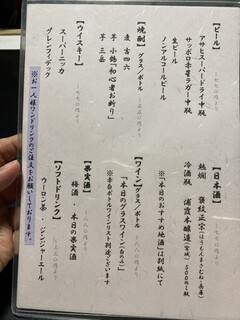 【ビール】
アサヒスーパードライ中瓶
サッポロ赤星ラガー中瓶
生ビール
ノンアルコールビール
【焼酎】グラス/ボトル
麦 吉四六
芋 小鶴「初心者お断り」
芋 三岳
【ウイスキー】
スーパーニッカ
グレンフィデック
【日本酒】
熱燗 褒紋正宗(ほうもんまさむね・兵庫)
冷酒瓶 浦霞本醸造(宮城) 500円より
※「本日のおすすめ地酒」は別紙にて
【ワイン】グラス/ボトル
「本日のグラスワイン(白のみ)」
※赤白ボトルワインリスト別途ございます
【果実酒】
梅酒・本日の果実酒
【ソフトドリンク】
ウーロン茶・ジンジャーエール
※お一人様ワンドリンクのご注文をお願いしております。